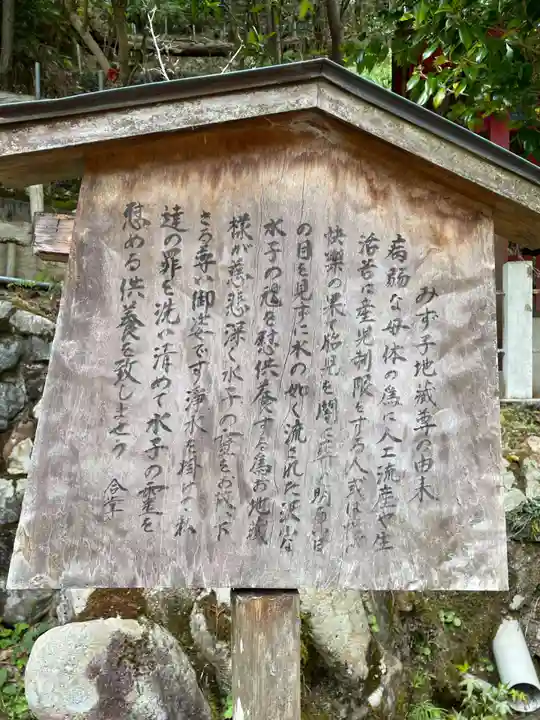 みず子地蔵尊の由来
病弱な母体の為に人工流産や生
活苦に産児制限をする人或は
快樂の果て胎児を闇に
の目を見ずに水の如く流された沢山な
水子の魂を慰供養する為お地蔵
様が慈悲深く水子の
さる尊い御姿です浄水を掛けて私
達の罪を洗い清めて水子の霊を
慰める供養を致しませう 合掌